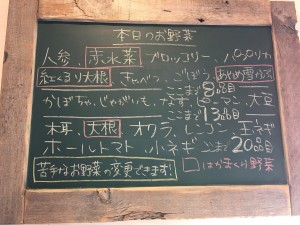 本日のお野菜
人参、赤水菜、ブロッコリー、パプリカ
紅くるり大根、きゃべつ、ごぼう、あやめ雪かぶ
ここまで8品目
かぼちゃ、じゃがいも、なす、ピーマン、大豆
ここまで13品目
木耳、大根、オクラ、レンコン、玉ネギ
ホールトマト、小ネギ ここまで20品目
苦手なお野菜の変更できます!
はかまくら野菜